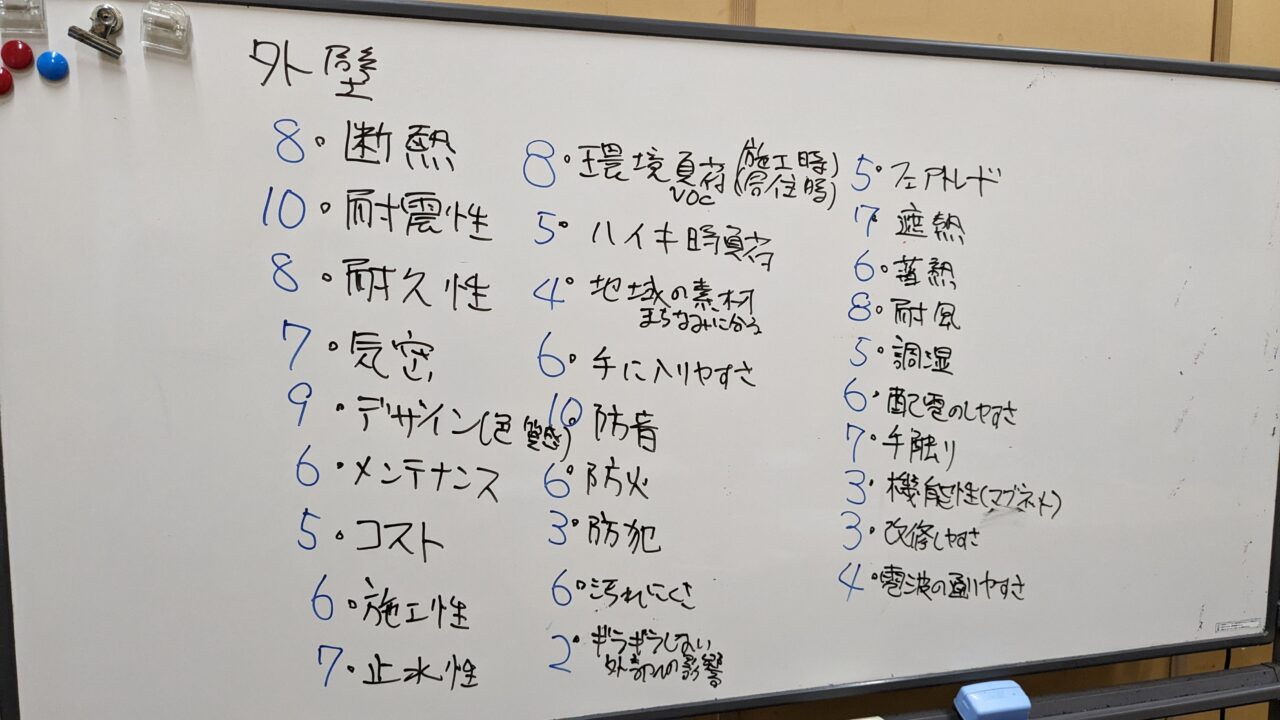 外壁
8・断熱
10・耐震性
8・耐久性
7・気密
9・デザイン(色 質感)
6・メンテナンス
5・コスト
6・施工性
7・止水性
8・環境負荷(施工時)
VOC (居住時)
5・ハイキ時負荷
4・地域の素材
まちなみに合う
6・手に入りやすさ
10 防音
6・防火
3・防犯
6・汚れにくさ
2・ギラギラしない
外部への影響
5・フェアトレード
7・遮熱
6・蓄熱
8・耐風
5・調湿
6・配電のしやすさ
7・手触り
3・機能性(マグネット)
3・改修しやすさ
4・電波の通りやすさ